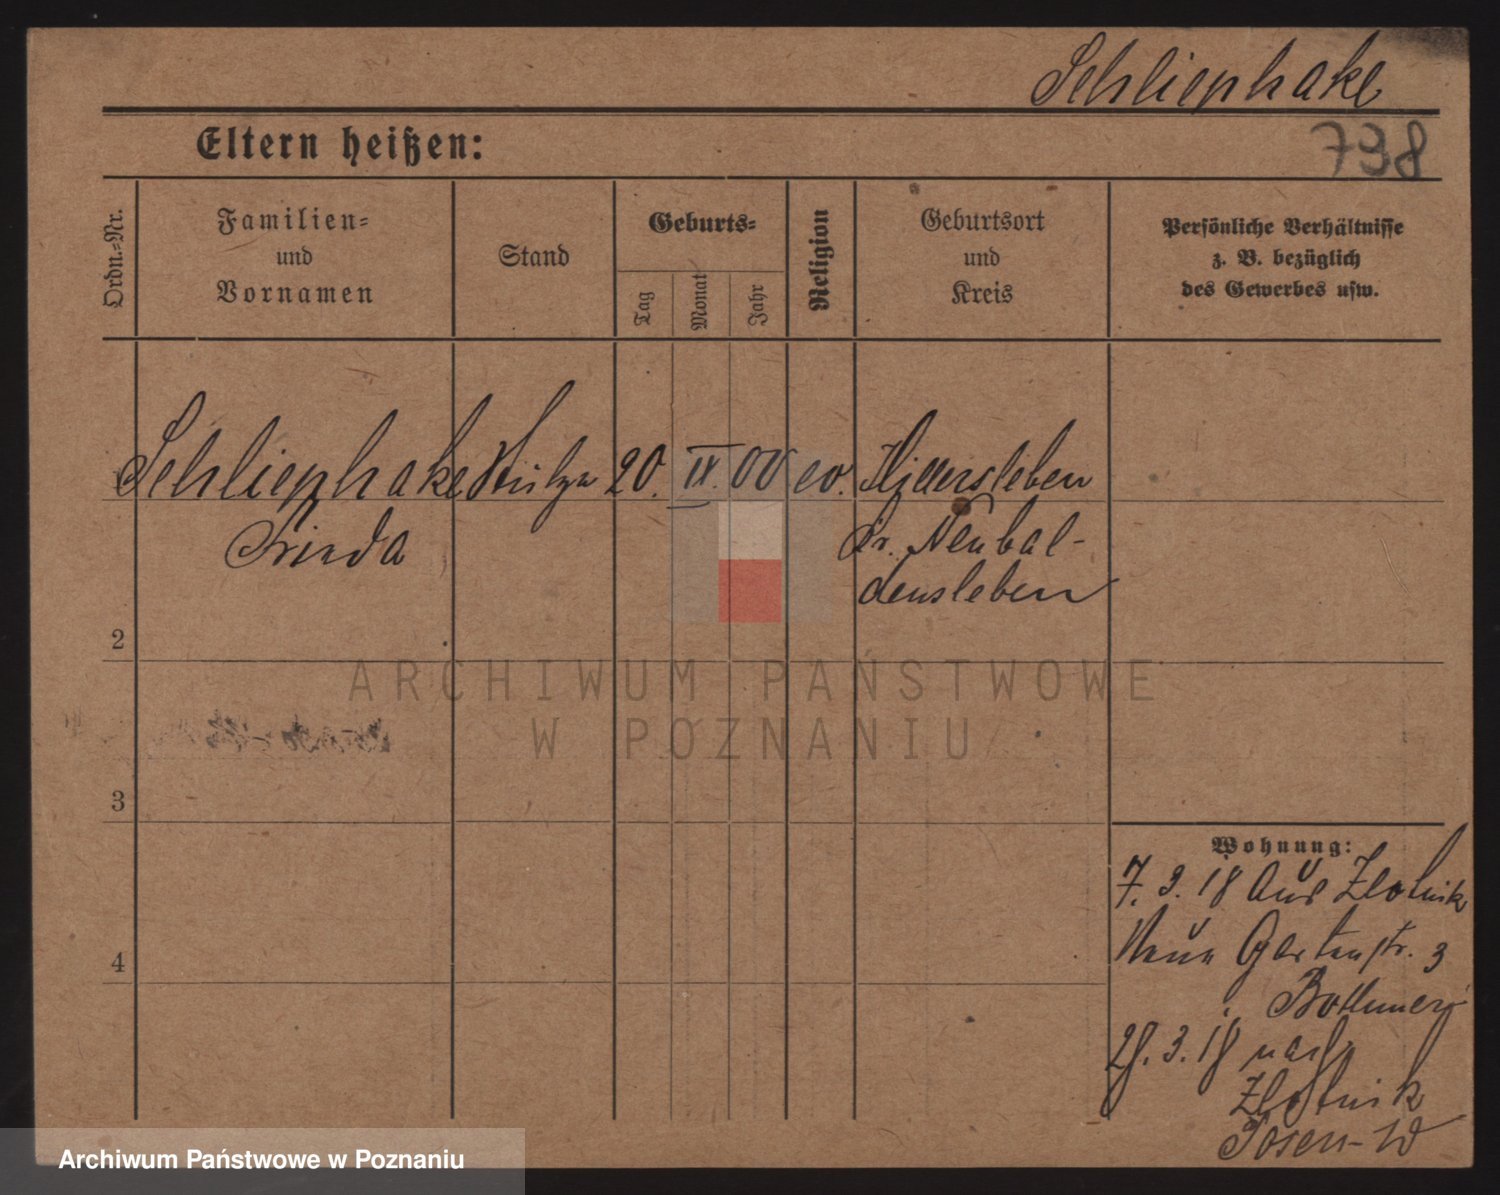 Schliephake
Eltern heißen:
798
Ordn.-Nr.
Familien-
und
Vornamen
Stand
Geburts-
Tag
Monat
Jahr
Religion
Geburtsort
und
Kreis
Persönliche Verhältnisse
z. B. bezüglich
des Gewerbes usw.
Schliephake 20. IX. 00 ev. Hillersleben
Frieda Kr. Neuhal-
densleben
2
3
4
Wohnung:
7. 3. 18 aus Zlotnik
Neue Gartenstr. 3
28. 3. 18 nach
Zlotnik
Posen-W
ARCHIWUM PAŃSTWOWE
W POZNANIU
Archiwum Państwowe w Poznaniu